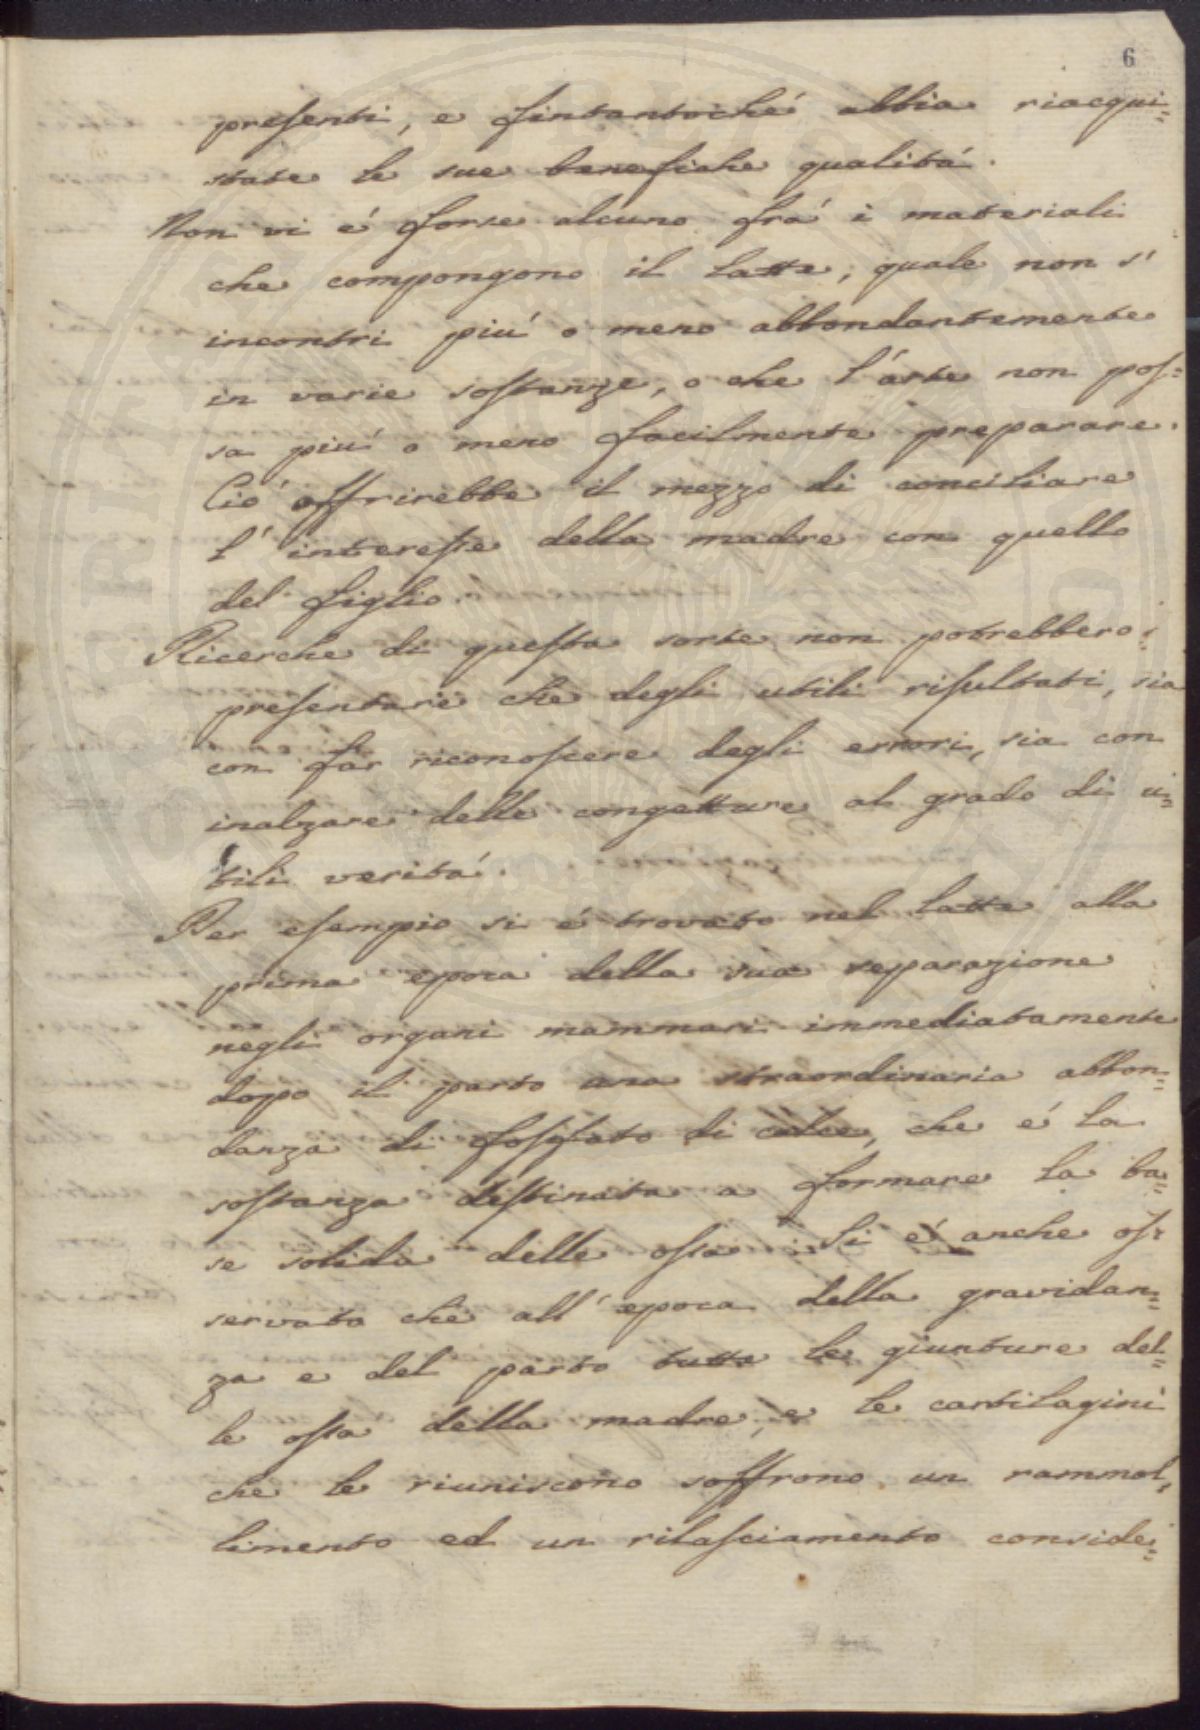 6
presenti, e fintantoché abbia riacqui=
state le sue benefiche qualitá.
Non vi é forse alcuno frá i materiali
che compongono il latte, quale non s'
incontri piú o meno abbondantemente
in varie sostanze, o che l'arte non pos=
sa piú o meno facilmente preparare.
Ció offrirebbe il mezzo di conciliare
l'interesse della madre con quello
del figlio.
Ricerche di questa sorte non potrebbero
presentare che degli utili risultati, sia
con far riconoscere degli errori, sia con
inalzare delle congetture al grado di u=
tili veritá.
Per esempio si é trovato nel latte alla
prima epoca della sua separazione
negli organi mammari immediatamente
dopo il parto una straordinaria abbon=
danza di fosfato di calce, che é la
sostanza destinata a formare la ba=
se solida delle ossa. Si é anche os=
servato che all'epoca della gravidan=
za e del parto tutte le giunture del=
le ossa della madre, e le cartilagini
che le riuniscono soffrono un rammol=
limento ed un rilasciamento conside=